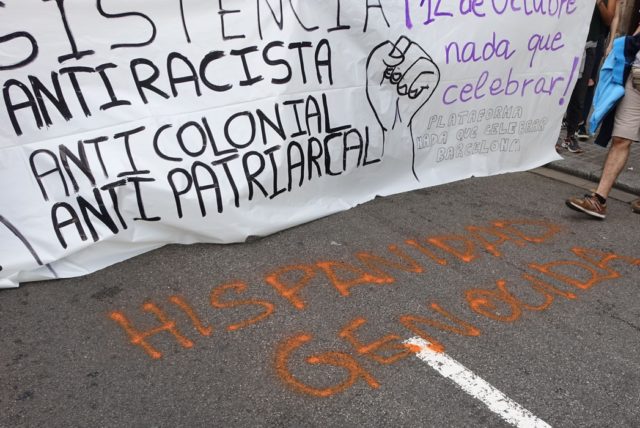 SISTENCIA
ANTIRACISTA
ANTICOLONIAL
ANTIPATRIARCAL
¡12 de Octubre
nada que
celebrar!
PLATAFORMA
NADA QUE CELEBRAR
BARCELONA
HISPANIDAD
GENOCIDA